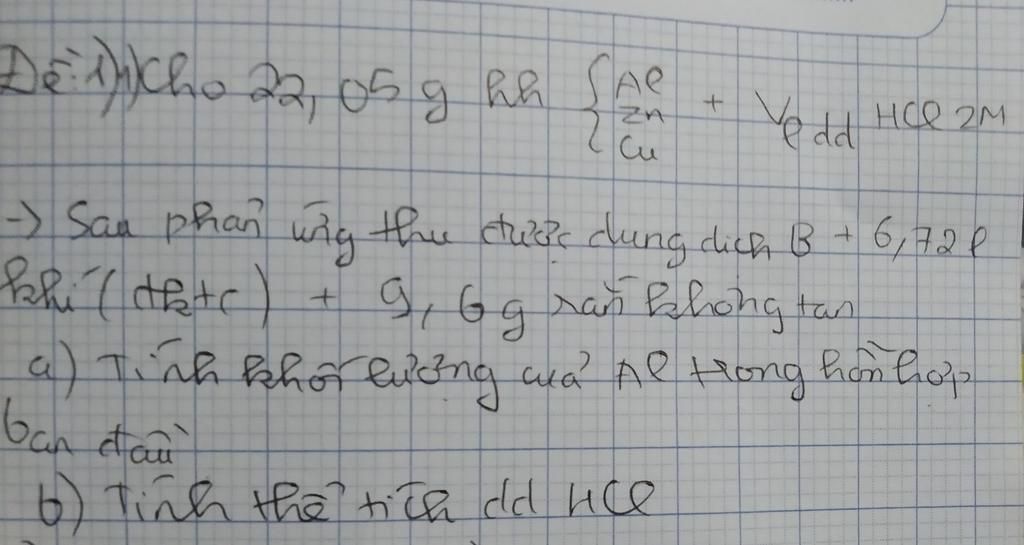 Đề: 1) 1) Cho 22,05 g hh { Al Zn Cu + Vl dd HCl 2M
→ Sau phản ứng thu được dung dịch B + 6,72 l
khí (đktc) + 9,6 g rắn không tan
a) Tính khối lượng của Al trong hỗn hợp
ban đầu
b) Tính thể tích dd HCl